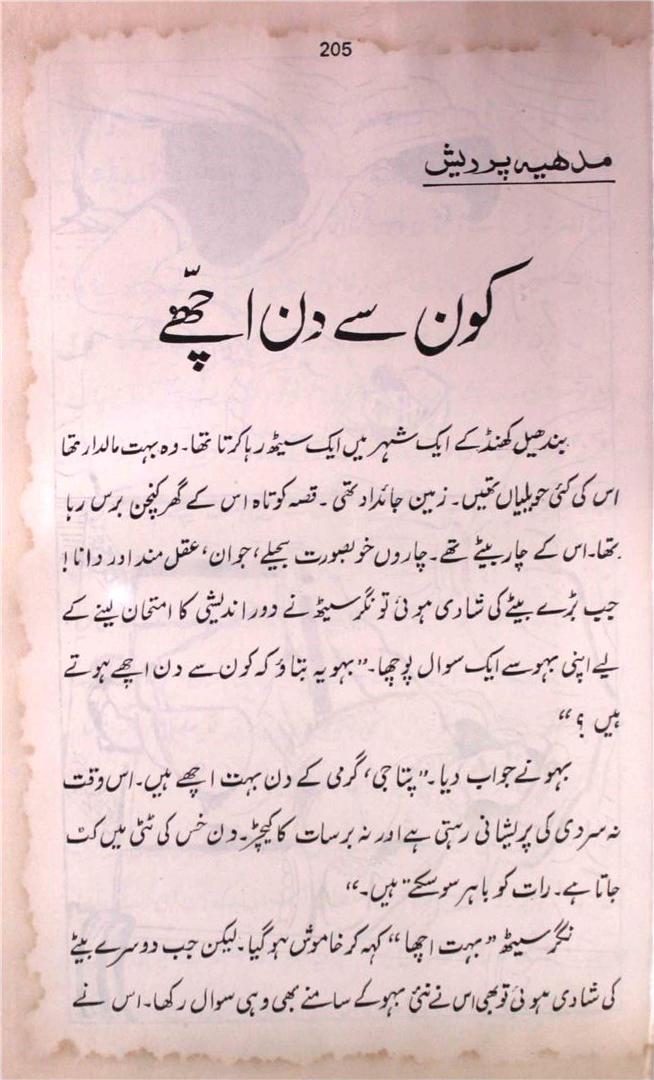 205
مدھیہ پردیش
کون سے دن اچھّے
بندھیل کھنڈ کے ایک شہر میں ایک سیٹھ رہا کرتا تھا۔ وہ بہت مالدار تھا
اس کی کئی حویلیاں تھیں۔ زمین جائداد تھی۔ قصہ کوتاہ اس کے گھر کنچن برس رہا
تھا۔ اس کے چار بیٹے تھے۔ چاروں خوبصورت سجیلے، جوان، عقل مند اور دانا!
جب بڑے بیٹے کی شادی ہوئی تو نگر سیٹھ نے دور اندیشی کا امتحان لینے کے
لیے اپنی بہو سے ایک سوال پوچھا۔ ”بہو یہ بتاؤ کہ کون سے دن اچھے ہوتے
ہیں؟“
بہو نے جواب دیا۔ ”پتا جی، گرمی کے دن بہت اچھے ہیں۔ اس وقت
نہ سردی کی پریشانی رہتی ہے اور نہ برسات کا کیچڑ۔ دن خس کی ٹٹی میں کٹ
جاتا ہے۔ رات کو باہر سو سکتے ہیں۔“
نگر سیٹھ ”بہت اچھا“ کہہ کر خاموش ہو گیا۔ لیکن جب دوسرے بیٹے
کی شادی ہوئی تو بھی اس نے نئی بہو کے سامنے بھی وہی سوال رکھا۔ اس نے